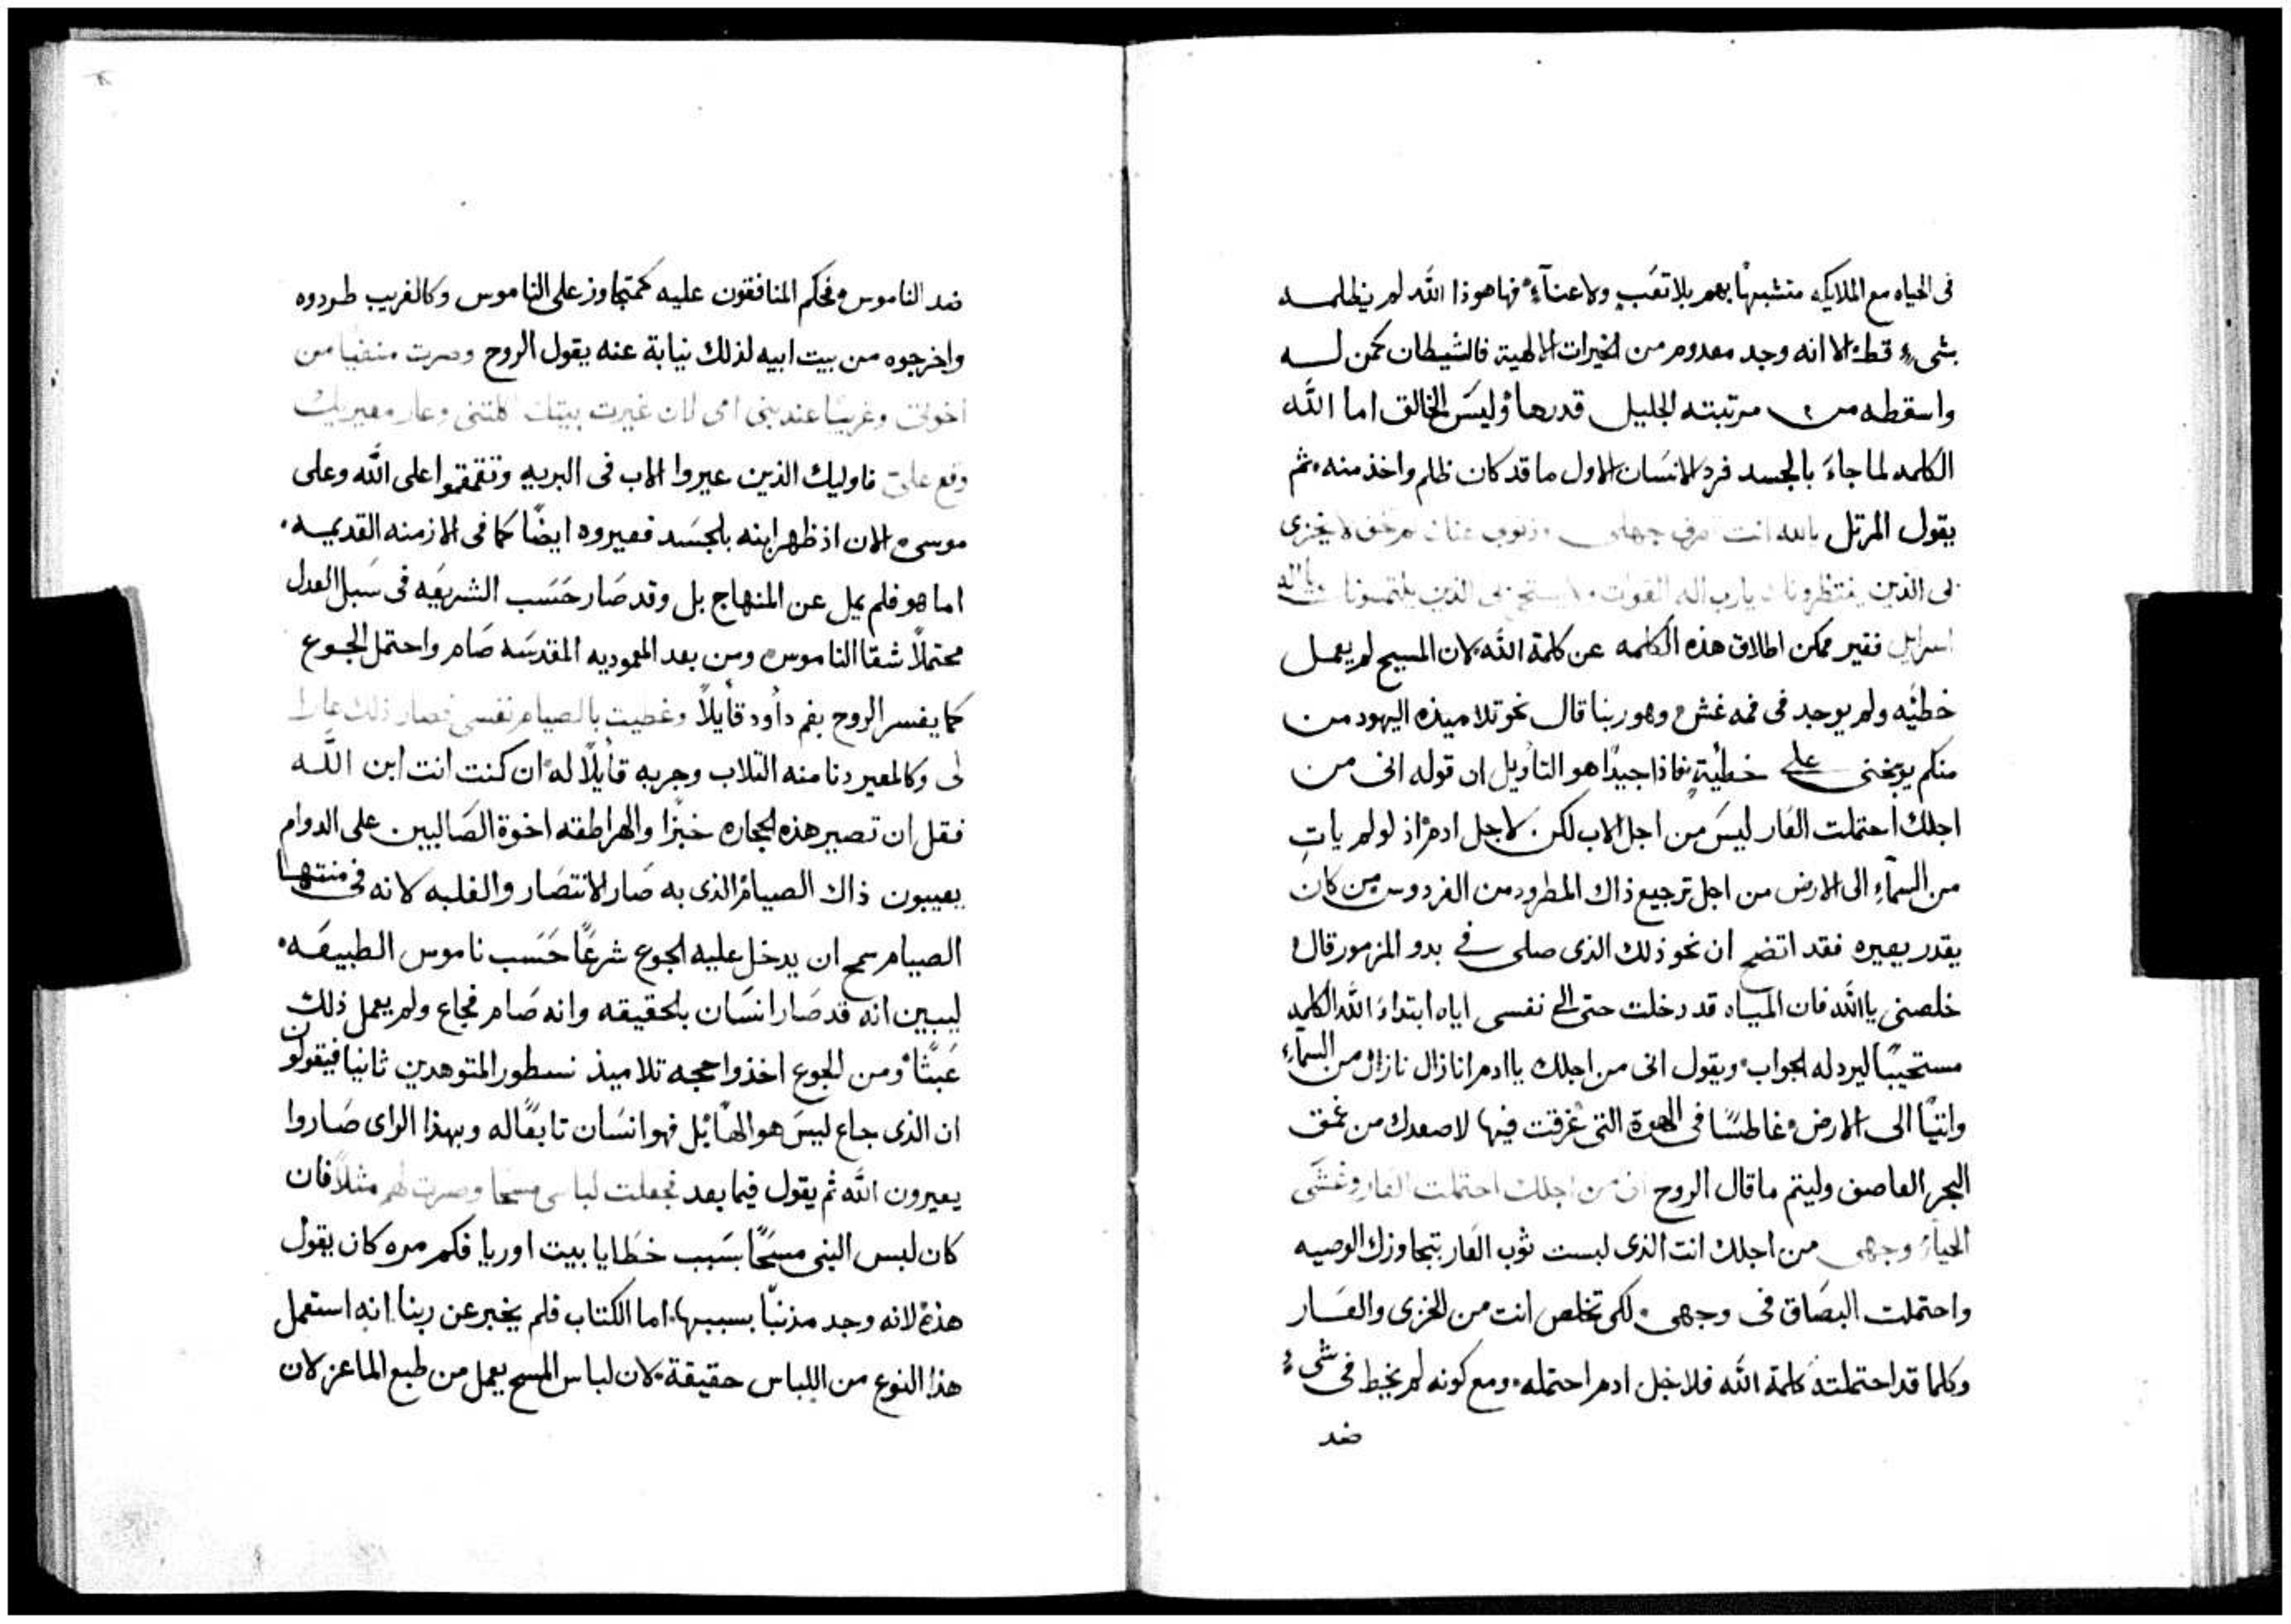 فى الحياه مع الملايكه متشبهًا بهم بلا تعَبٍ ولا عنآءٍ فها هوذا الله لم يظلمه
بشىءٍ قط الا انه وجد معدوم من الخيرات الالهية فالشيطان كمن له
واسقطه من مرتبته الجليل قدرها وليسَ الخالق اما الله
الكلمه لما جاءَ بالجسد فرد الانسَان الاول ما قد كان ظلم واخذ منه ثم
يقول المرتل يا الله انت تعرف جهلى وذنوبى عنك لم تخف لا يخزى
بى الذين ينتظرونك يارب اله القوات ولا يستحى بى الذين يلتمسونك يا اله
اسرايل فغير ممكن اطلاق هذه الكلمه عن كلمة الله لان المسيح لم يعمل
خطيّه ولم يوجد فى فمه غش وهو ربنا قال نحو تلاميذه اليهود من
منكم يوبخنى على خطيّةٍ فاذا جيدًا هو التأويل ان قوله انى من
اجلك احتملت العَار ليسَ من اجل الاب لكن لاجل ادم اذ لو لم ياتِ
من السمآءِ الى الارض من اجل ترجيع ذاك المطرود من الفردوس من كان
يقدر يعيره فقد اتضح ان نحو ذلك الذى صلى فى بدو المزمور قال
خلصنى يا الله فان المياه قد دخلت حتى الى نفسى اياه ابتداءَ الله الكلمه
مستجيبًا ليرد له الجواب ويقول انى من اجلك يا ادم انا نازل من السمآءِ
واتيًا الى الارض وغاطسًا فى الهوة التى غرقت فيها لاصعدك من عمق
البحر العاصف وليتم ما قال الروح انى من اجلك احتملت العار وغشى
الحياءُ وجهى من اجلك انت الذى لبست ثوب العَار بتجاوزك الوصيه
واحتملت البصَاق فى وجهى لكى تخلص انت من الخزى والعَار
وكلما قد احتملته كلمة الله فلاجل ادم احتمله ومع كونه لم يخط فى شىءٍ
ضد
ضد الناموس فحكم المنافقون عليه كمتجاوز على الناموس وكالغريب طردوه
واخرجوه من بيت ابيه لذلك نيابة عنه يقول الروح وصرت منفيًا من
اخوتى وغريبًا عند بنى امى لان غيرت بيتك اكلتنى وعار معيريك
وقع علىّ فاوليك الذين عيروا الاب فى البريه وتقمقموا على الله وعلى
موسى الان اذ ظهر ابنه بالجسَد فعيروه ايضًا كما فى الازمنه القديمه
اما هو فلم يمل عن المنهاج بل وقد صَار حَسَب الشريعَه فى سَبل العدل
محتملًا شقا الناموس ومن بعد المعموديه المقدسَه صَام واحتمل الجوع
كما يفسر الروح بفم داود قايلًا وغطيت بالصيام نفسى فصار ذلك عارا
لى وكالمعير دنا منه الثلاب وجربه قايلًا له ان كنت انت ابن الله
فقل ان تصير هذه الحجاره خبزًا والهراطقه اخوة الصَالبين على الدوام
يعيبون ذاك الصيام الذى به صَار الانتصَار والغلبه لانه فى منتها
الصيام سمح ان يدخل عليه الجوع شرعًا حَسَب ناموس الطبيعَه
ليبين انه قد صَار انسَان بالحقيقه وانه صَام فجاع ولم يعمل ذلك
عبثًا ومن الجوع اخذوا حجه تلاميذ نسطور المتوهدين ثانيا فيقولون
ان الذى جاع ليسَ هو الهًا بل فهو انسَان تابعًا له وبهذا الراى صَاروا
يعيرون الله ثم يقول فيما بعد فجعلت لباسى مسحا وصرت لهم مثلًا فان
كان لبس النبى مسحًا بسَبب خطَايا بيت اوريا فكم مره كان يقول
هذه لانه وجد مذنبًا بسببها اما الكتاب فلم يخبر عن ربنا انه استعمل
هذا النوع من اللباس حقيقة لان لباس المسح يعمل من طبع الماعز لان